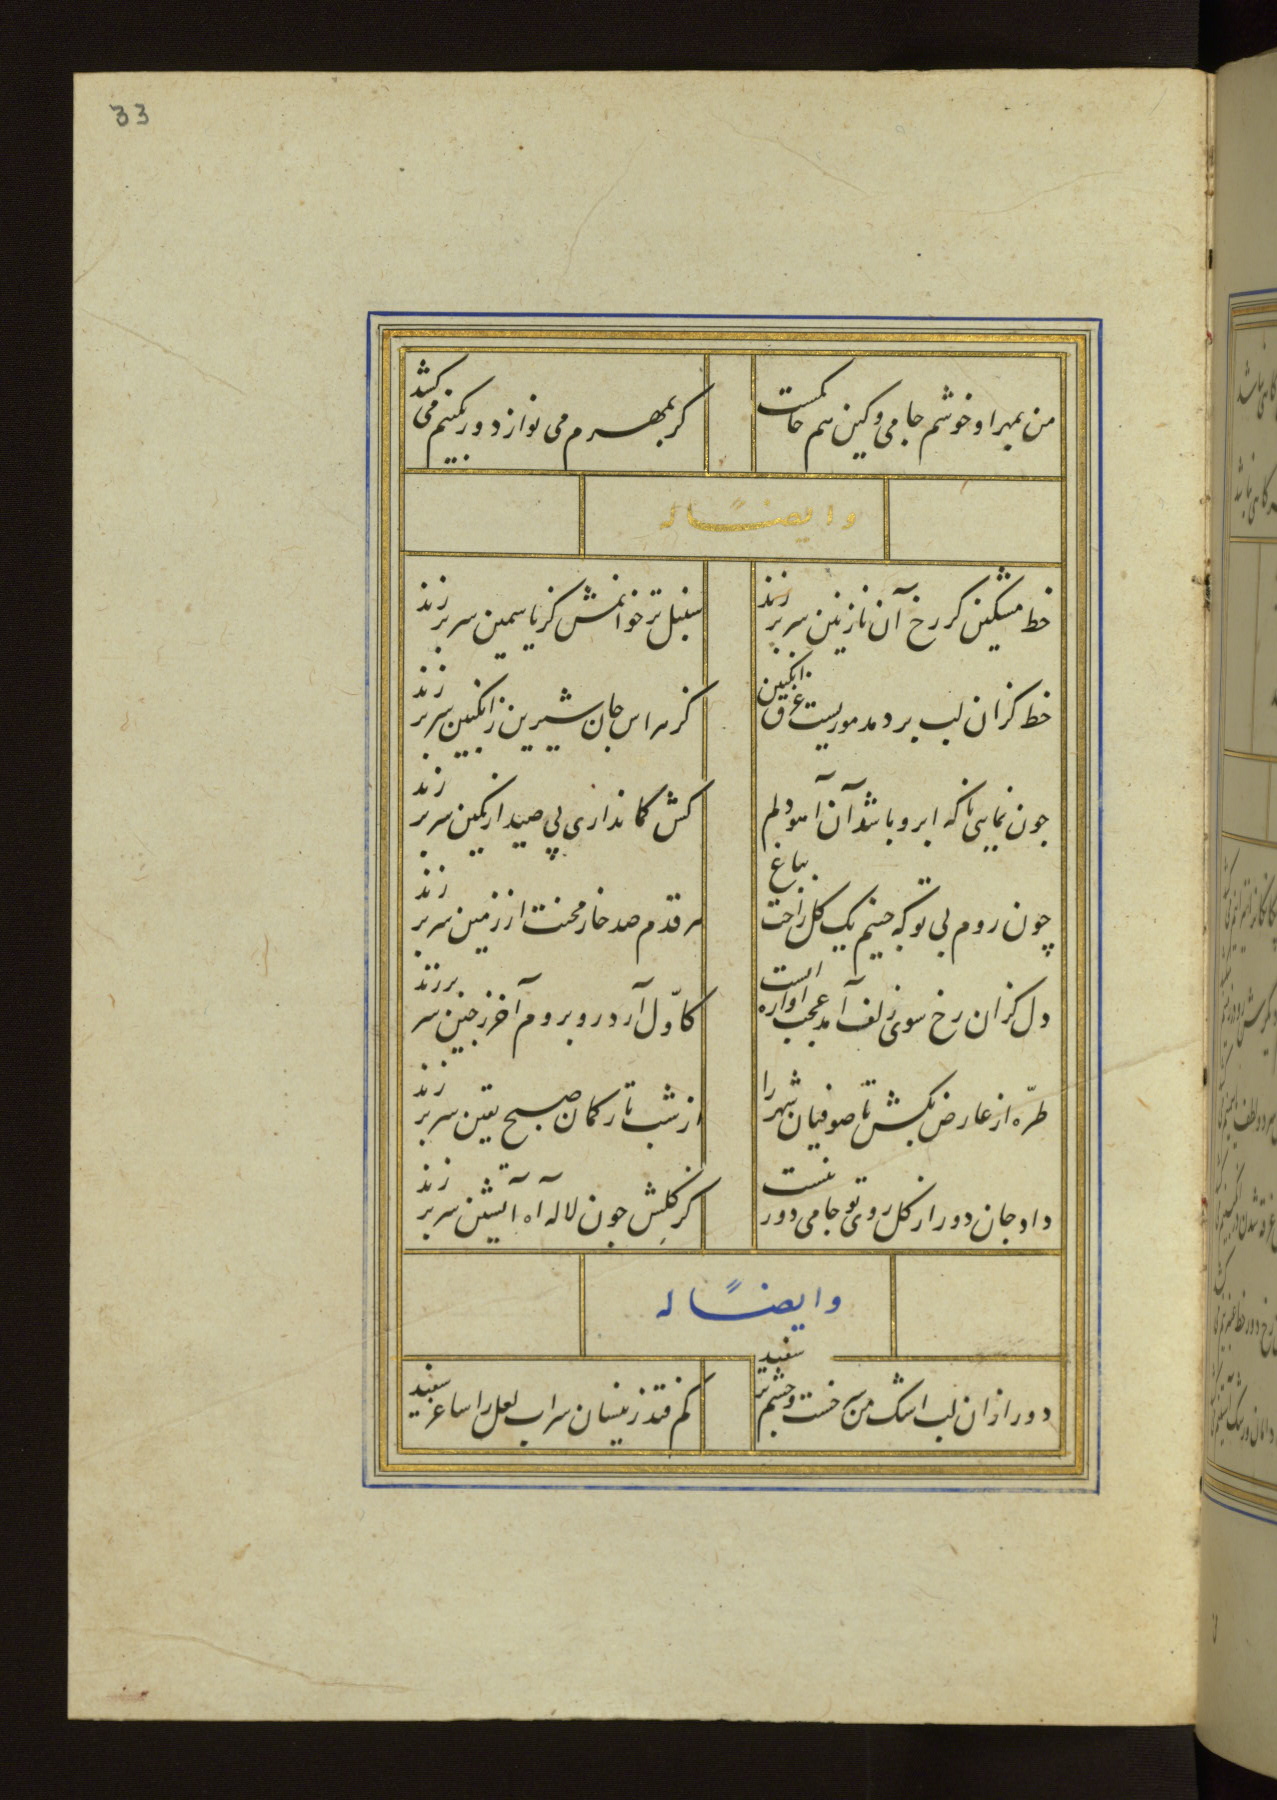 33
من بمهر او خوشم جامی و کین هم حاکمست
کر بمهرم می نوازد ور بکینم می کشد
وایضاً له
خط مشکین کز رخ آن نازنین سر بر زند
سنبل تر خوانمش کز یاسمین سر بر زند
خط کزان لب بر دمد موریست غرق انکبین
کز هراس جان شیرین ز انکبین سر بر زند
چون نمایی ناکه ابرو باشد آن آهو دلم
کش کمانداری پی صید از کمین سر بر زند
چون روم بی تو که چینم یک کل راحت بباغ
هر قدم صد خار محنت از زمین سر بر زند
دل کزان رخ سوی زلف آمد عجب اواره ایست
کاوّل آرد رو بروم آخر ز چین سر بر زند
طرّه از عارض بکش تا صوفیان شهر را
از شب تار کمان صبح یقین سر بر زند
داد جان دور از کل روی تو جامی دور نیست
کر کلش چون لاله آه آتشین سر بر زند
وایضاً له
دور ازان لب اشک من سرخست و چشم تر سفید
کم فتد زینسان سراب لعل را ساغر سفید